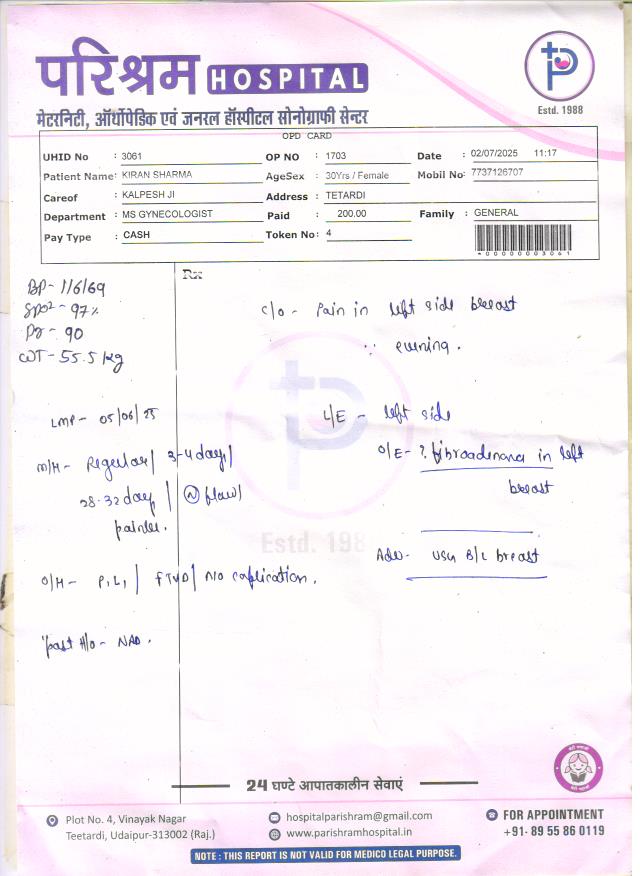 परिश्रम HOSPITAL
Estd. 1988
मेटरनिटी, ऑर्थोपेडिक एवं जनरल हॉस्पीटल सोनोग्राफी सेन्टर
OPD CARD
UHID No : 3061 OP NO : 1703 Date : 02/07/2025 11:17
Patient Name: KIRAN SHARMA AgeSex : 30Yrs / Female Mobil No: 7737126707
Careof : KALPESH JI Address : TETARDI
Department : MS GYNECOLOGIST Paid : 200.00 Family : GENERAL
Pay Type : CASH Token No: 4
*000000003061
Rx
BP - 116/69
SpO2 - 97%
PR - 90
WT - 55.5 kg
C/o - Pain in left side breast
∵ evening.
LMP - 05/06/25
L/E - left side
M/H - Regular/ 3-4 days/
28-32 days/ (N) flow/
painles.
O/E - ? fibroadenoma in left
breast
Estd. 198
Adv - USG B/L breast
O/H - P1L1/ FTVD/ N/O complication.
Past H/o - NAD.
24 घण्टे आपातकालीन सेवाएं
Plot No. 4, Vinayak Nagar
Teetardi, Udaipur-313002 (Raj.)
hospitalparishram@gmail.com
www.parishramhospital.in
FOR APPOINTMENT
+91- 89 55 86 0119
NOTE : THIS REPORT IS NOT VALID FOR MEDICO LEGAL PURPOSE.